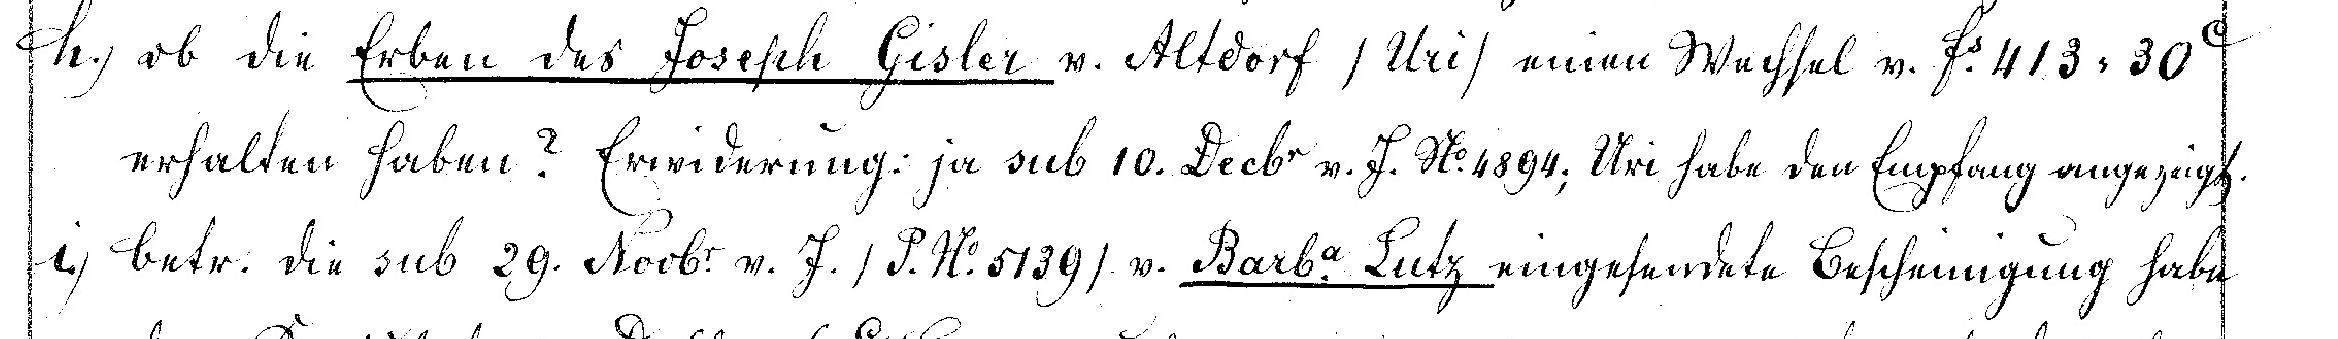 h.) ob die Erben des Joseph Gisler v. Altdorf /Uri/ einen Wechsel v. fs. 413,30 C
erhalten haben? Erwiderung: ja sub 10. Decbr v. J. No. 4894; Uri habe den Empfang angezeigt.
i.) betr. die sub 29. Novbr. v. J. /P. No. 5139/ v. Barba. Lutz eingesendete Bescheinigung habe